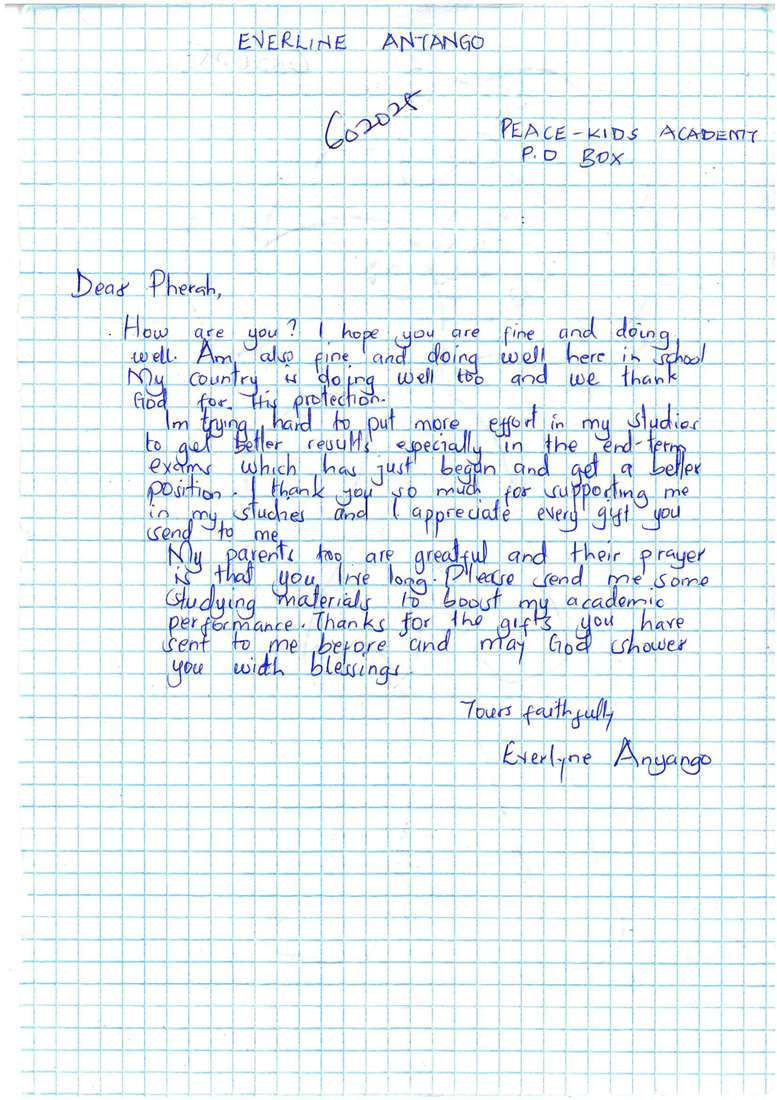 EVERLINE ANYANGO
602025
PEACE-KIDS ACADEMY
P.O BOX
Dear Pherah,
How are you? I hope you are fine and doing
well. Am also fine and doing well here in school
My country is doing well too and we thank
God for His protection.
Im trying hard to put more effort in my studies
to get better results especially in the end-term
exams which has just began and get a better
position. I thank you so much for supporting me
in my studies and I appreciate every gift you
send to me.
My parents too are greatful and their prayer
is that you live long. Please send me some
studying materials to boost my academic
performance. Thanks for the gifts you have
sent to me before and may God shower
you with blessings.
Yours faithfully
Everlyne Anyango